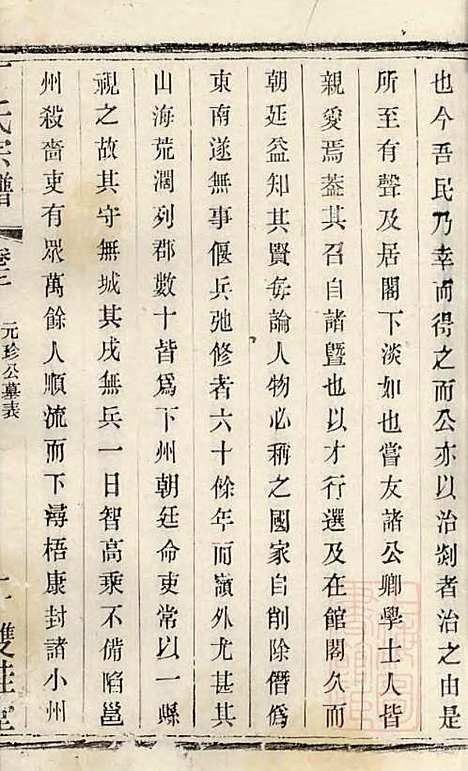 也今吾民乃幸而得之而公亦以治剡者治之由是
所至有聲及居閣下淡如也嘗友諸公卿學士人皆
親愛焉葢其召自諸暨也以才行選及在館閣久而
朝廷益知其賢每論人物必稱之國家自削除僭僞
東南遂無事偃兵弛修者六十餘年而嶺外尤甚其
山海荒濶列郡數十皆爲下州朝廷命吏常以一縣
視之故其守無城其戌無兵一日智高乘不備陷邕
州殺嗇吏有眾萬餘人順流而下潯梧康封諸小州
氏宗譜
卷
元珍公墓表
雙桂堂